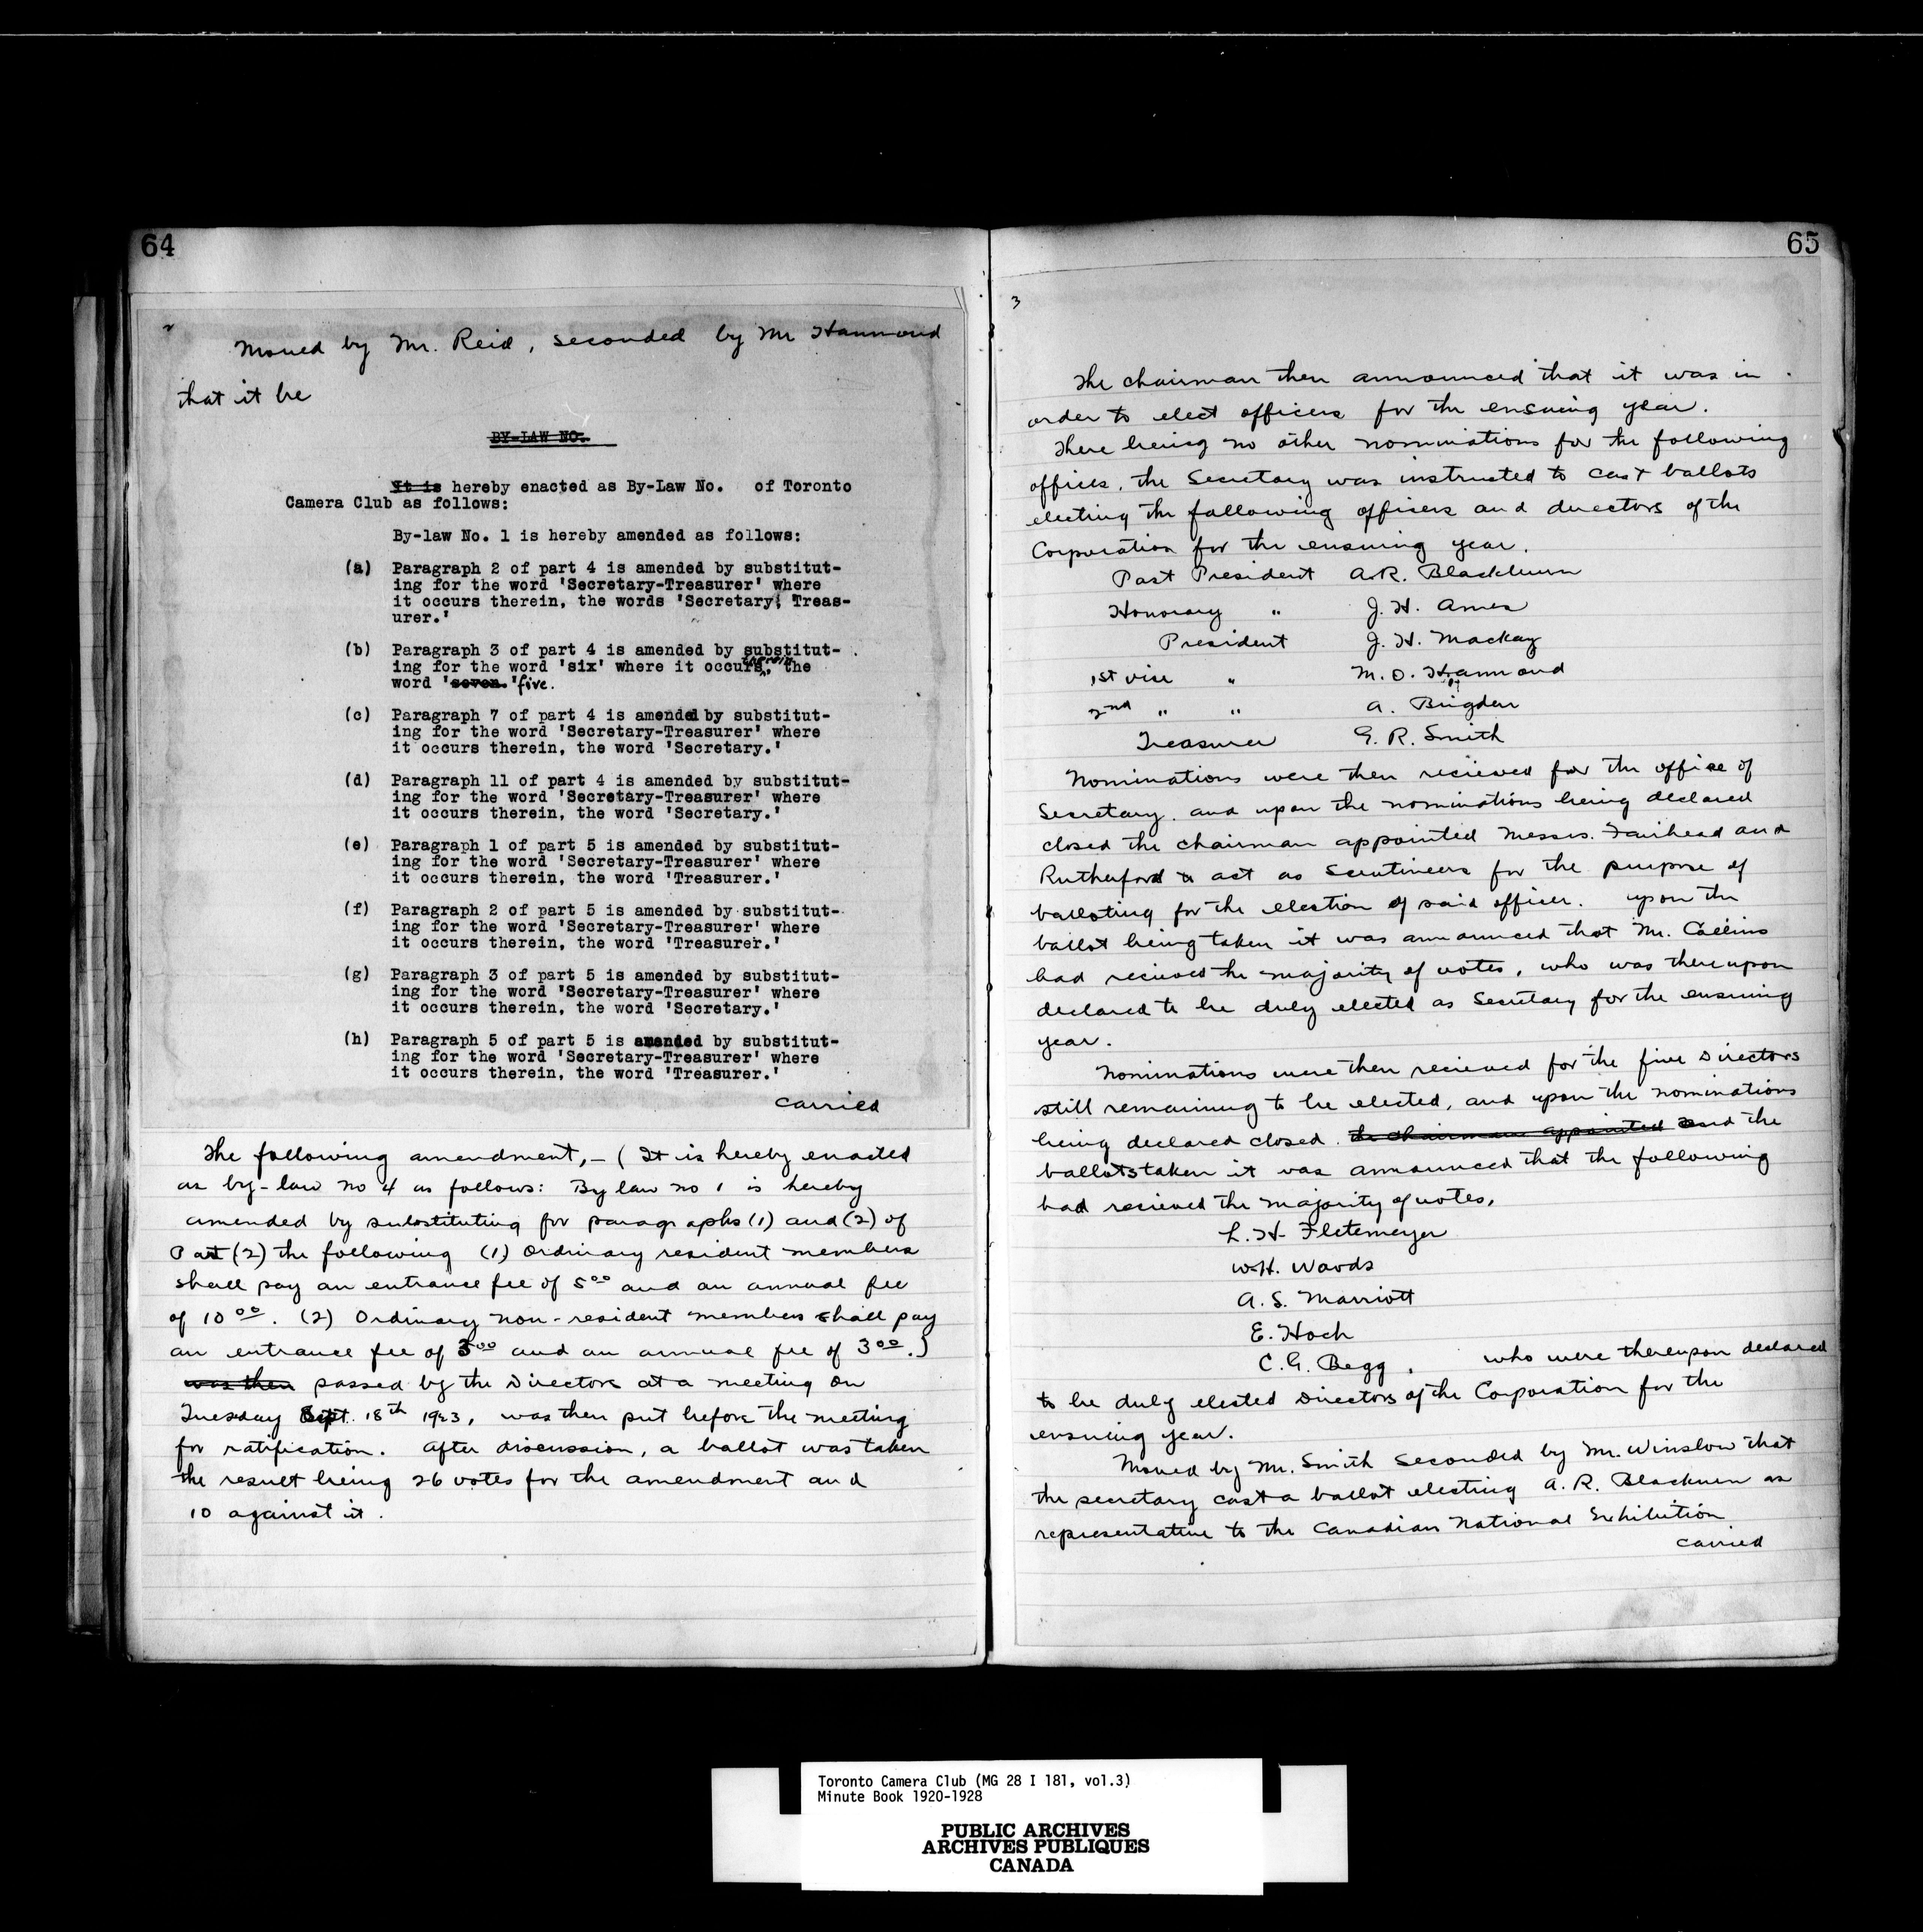 64
2
Moved by Mr. Reid, seconded by Mr Hammond
that it be
BY-LAW NO.
It is hereby enacted as By-Law No. of Toronto
Camera Club as follows:
By-law No. 1 is hereby amended as follows:
(a) Paragraph 2 of part 4 is amended by substitut-
ing for the word 'Secretary-Treasurer' where
it occurs therein, the words 'Secretary, Treas-
urer.'
(b) Paragraph 3 of part 4 is amended by substitut-
ing for the word 'six' where it occurs therein, the
word 'seven.' five.
(c) Paragraph 7 of part 4 is amended by substitut-
ing for the word 'Secretary-Treasurer' where
it occurs therein, the word 'Secretary.'
(d) Paragraph 11 of part 4 is amended by substitut-
ing for the word 'Secretary-Treasurer' where
it occurs therein, the word 'Secretary.'
(e) Paragraph 1 of part 5 is amended by substitut-
ing for the word 'Secretary-Treasurer' where
it occurs therein, the word 'Treasurer.'
(f) Paragraph 2 of part 5 is amended by substitut-
ing for the word 'Secretary-Treasurer' where
it occurs therein, the word 'Treasurer.'
(g) Paragraph 3 of part 5 is amended by substitut-
ing for the word 'Secretary-Treasurer' where
it occurs therein, the word 'Secretary.'
(h) Paragraph 5 of part 5 is amended by substitut-
ing for the word 'Secretary-Treasurer' where
it occurs therein, the word 'Treasurer.'
carried
The following amendment,- (It is hereby enacted
as by-law no 4 as follows: By law no 1 is hereby
amended by substituting for paragraphs (1) and (2) of
Part (2) the following (1) Ordinary resident members
shall pay an entrance fee of 5 00 and an annual fee
of 10 00. (2) Ordinary non-resident members shall pay
an entrance fee of 3 00 and an annual fee of 3 00.)
was then passed by the Directors at a meeting on
Tuesday Sept. 18th 1923, was then put before the meeting
for ratification. After discussion, a ballot was taken
the result being 26 votes for the amendment and
10 against it.
65
3
The chairman then announced that it was in
order to elect officers for the ensuing year.
There being no other nominations for the following
offices, the Secretary was instructed to cast ballots
electing the following officers and directors of the
Corporation for the ensuing year.
Past President A.R. Blackburn
Honorary " J. H. Ames
President J. H. Mackay
1st vice " M. O. Hammond
2nd " " A. Brigden
Treasurer G. R. Smith
Nominations were then recieved for the office of
Secretary, and upon the nominations being declared
closed the chairman appointed Messrs. Fairhead and
Rutherford to act as Scrutineers for the purpose of
balloting for the election of said officer. upon the
ballot being taken it was announced that Mr. Collins
had recieved the majority of votes, who was thereupon
declared to be duly elected as Secretary for the ensuing
year.
Nominations were then recieved for the five Directors
still remaining to be elected, and upon the nominations
being declared closed. the chairman appointed and the
ballots taken it was announced that the following
had recieved the majority of votes,
L. H. Fletemeyer
W.H. Woods
A. S. Marriott
E. Hoch
C. G. Begg, who were thereupon declared
to be duly elected Directors of the Corporation for the
ensuing year.
Moved by Mr. Smith Seconded by Mr. Winslow that
the secretary cast a ballot electing A. R. Blackburn as
representative to the Canadian National Exhibition
carried
Toronto Camera Club (MG 28 I 181, vol.3)
Minute Book 1920-1928
PUBLIC ARCHIVES
ARCHIVES PUBLIQUES
CANADA